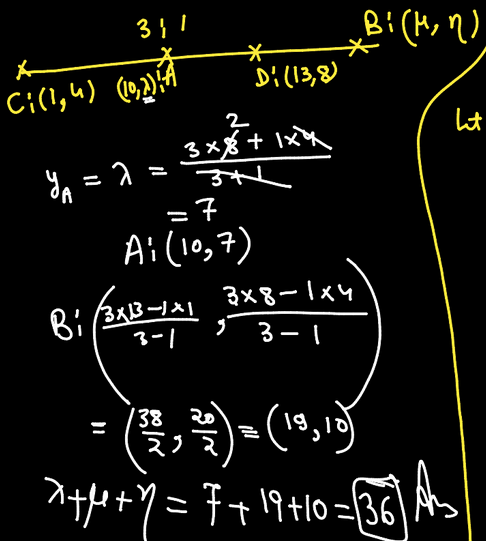 3 : 1
B:(μ, η)
C:(1,4) (10,λ):A D:(13,8)
y_A = λ = (3×8 + 1×4)/(3+1) 2
= 7
A:(10,7)
B:((3×13−1×1)/(3−1), (3×8−1×4)/(3−1))
= (38/2, 20/2) = (19,10)
λ+μ+η = 7+19+10 = 36 Ans